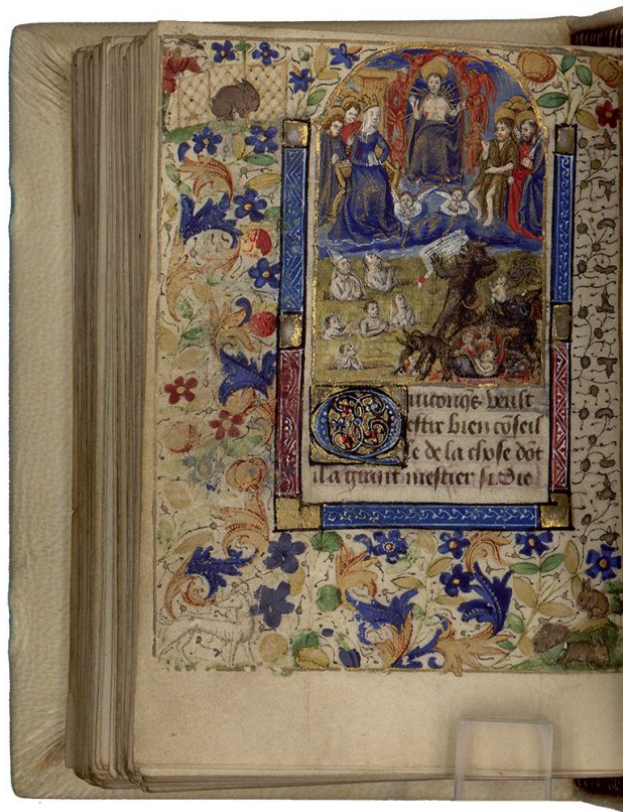 Quiconq̄s veult
estre bien cōseil
le de la chose dōt
il a grant mestier si die